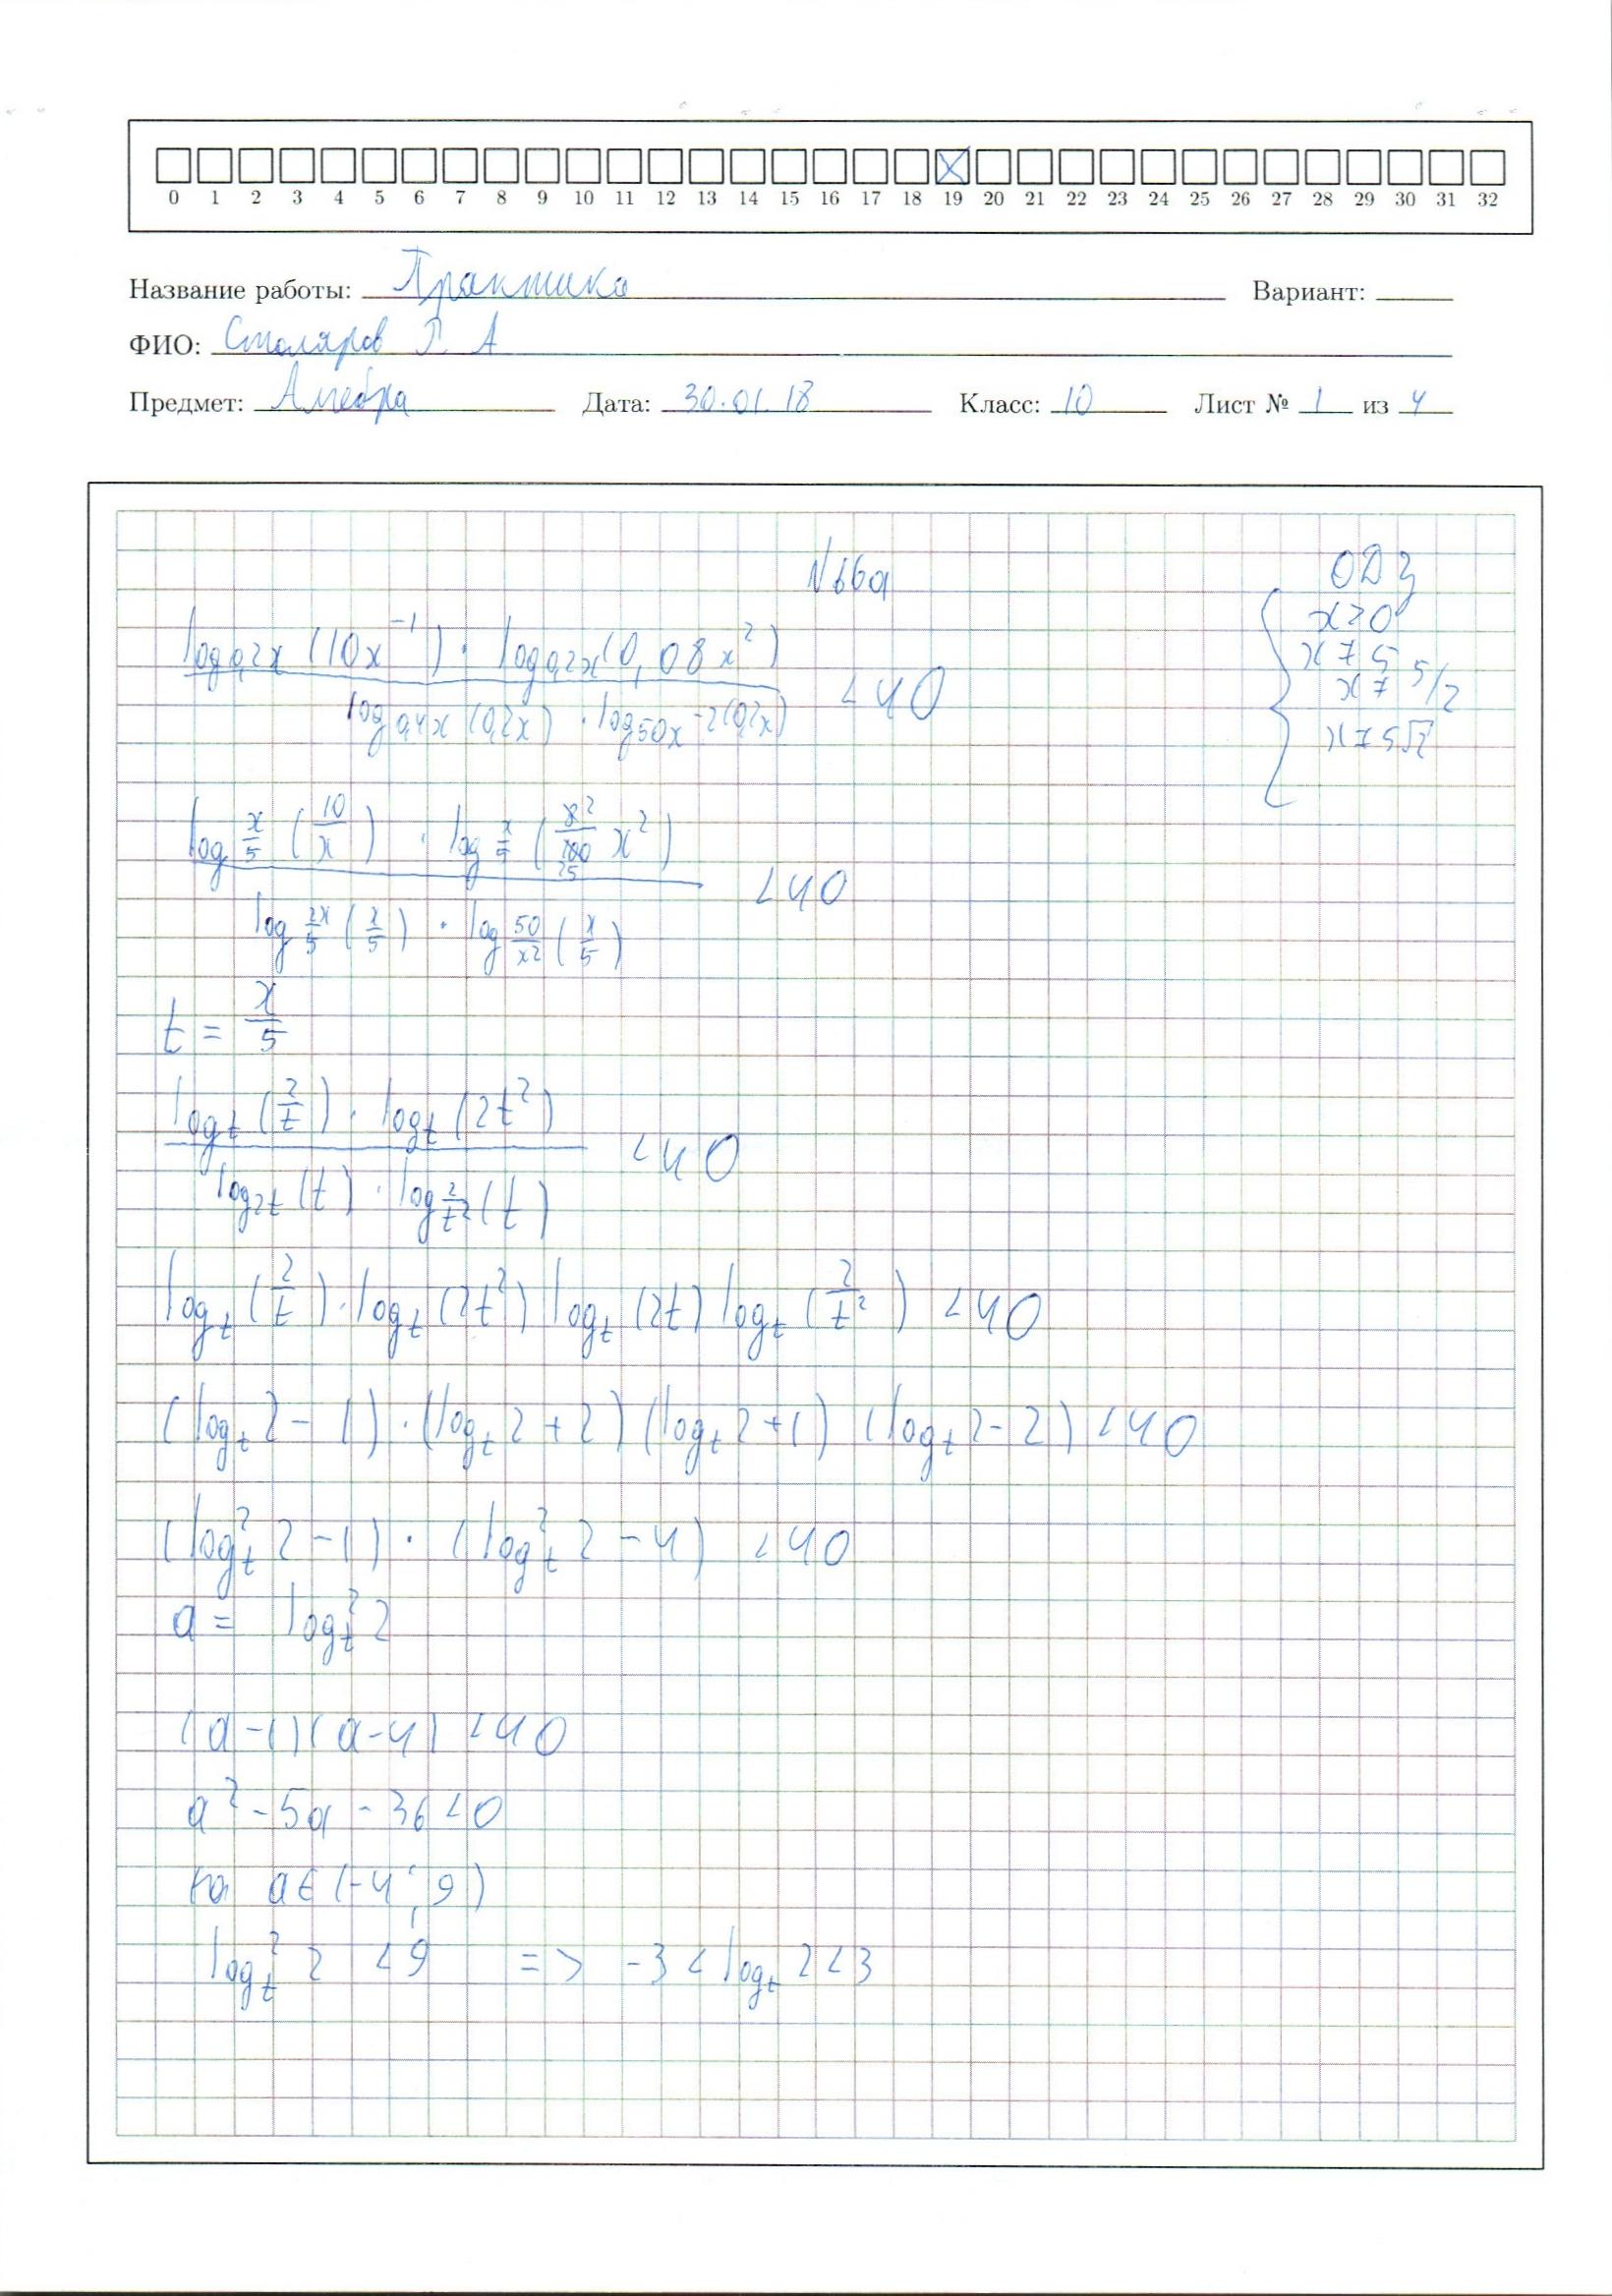 0 1 2 3 4 5 6 7 8 9 10 11 12 13 14 15 16 17 18 19 20 21 22 23 24 25 26 27 28 29 30 31 32
Название работы: Практика Вариант:
ФИО: Столяров Г. А
Предмет: Алгебра Дата: 30.01.18 Класс: 10 Лист № 1 из 4
N66а
ОДЗ
x>0
x≠5
x≠5/2
x≠5√2
log_{0,2x}(10x^{-1}) · log_{0,2x}(0,08x^2) / log_{0,4x}(0,2x) · log_{50x^{-2}}(0,2x) < 40
log_{x/5}(10/x) · log_{x/5}(8^2/100_25 x^2) / log_{2x/5}(x/5) · log_{50/x^2}(x/5) < 40
t = x/5
log_t(2/t) · log_t(2t^2) / log_{2t}(t) · log_{2/t^2}(t) < 40
log_t(2/t) · log_t(2t^2) log_t(2t) log_t(2/t^2) < 40
(log_t 2 - 1) · (log_t 2 + 2)(log_t 2 + 1)(log_t 2 - 2) < 40
(log_t^2 2 - 1) · (log_t^2 2 - 4) < 40
a = log_t^2 2
(a-1)(a-4) < 40
a^2 - 5a - 36 < 0
на a∈(-4; 9)
log_t^2 2 < 9 => -3 < log_t 2 < 3